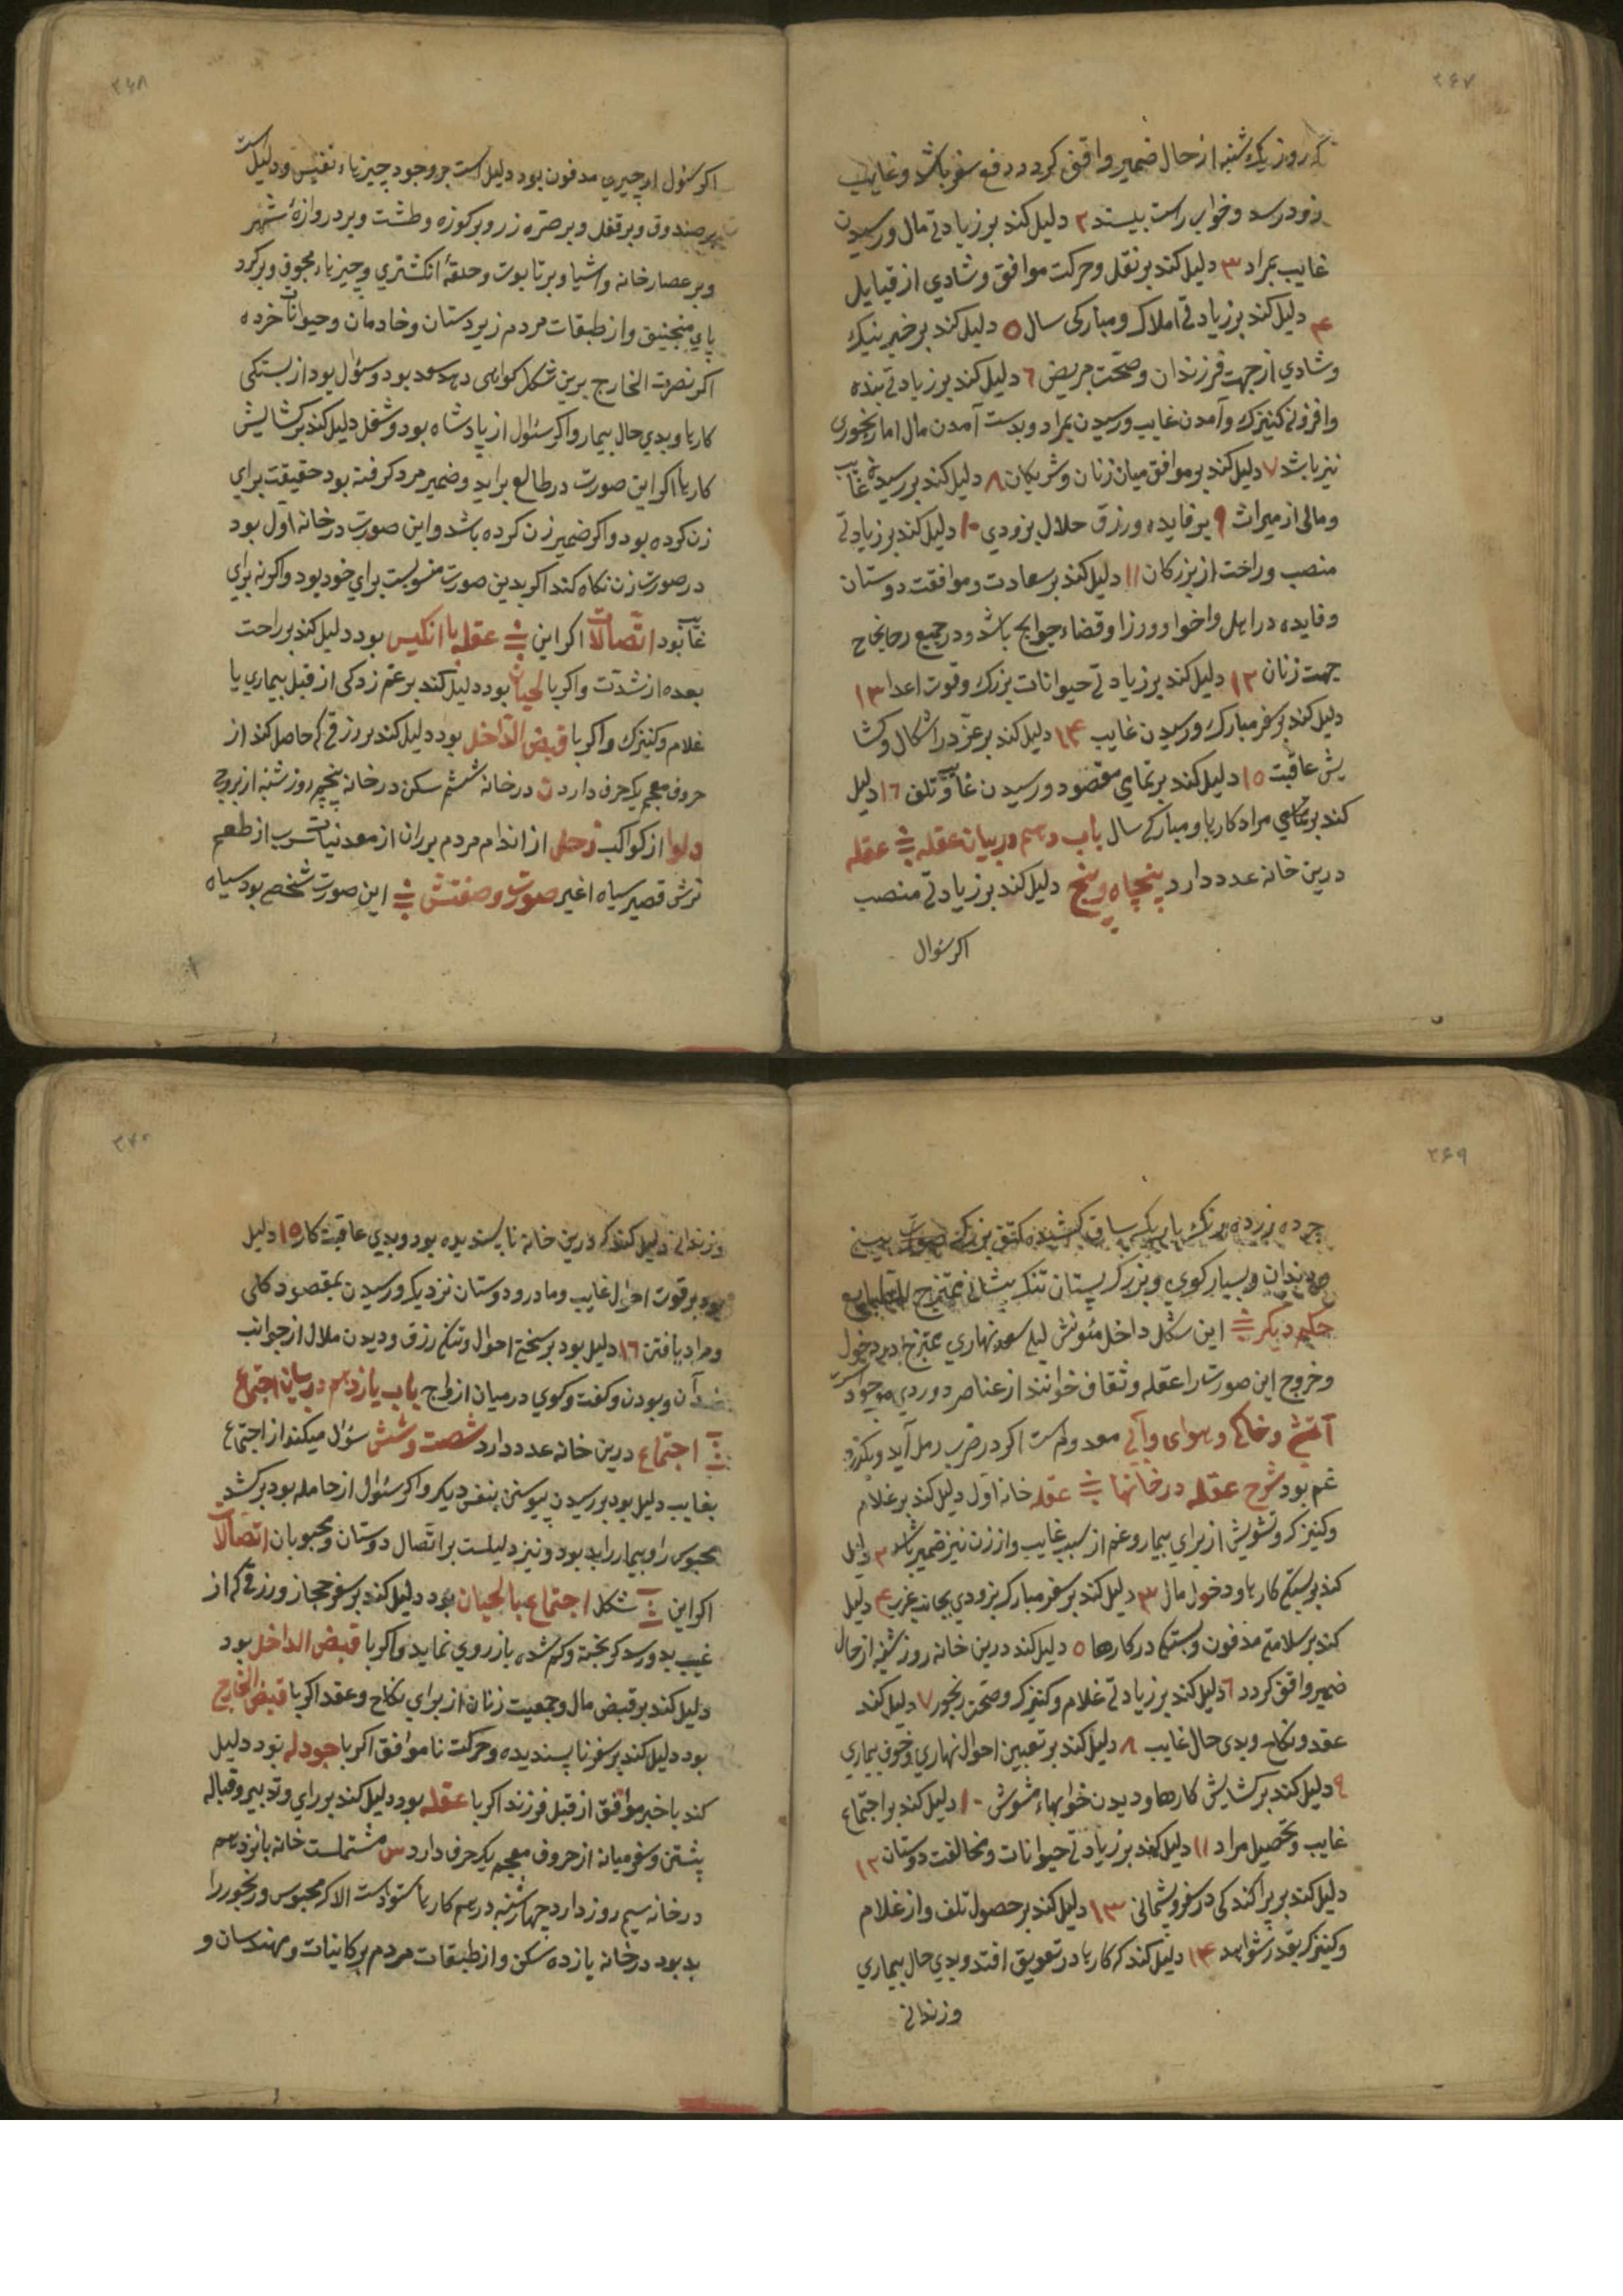 ۲۶۷
که روز یک شنبه از حال ضمیر واقف کردد و رفع سفر باشد و غایب
زود رسد و خواب راست بیند ۲ دلیل کند بر زیادتی مال و رسیدن
غایب بمراد ۳ دلیل کند بر نقل و حرکت موافق و شادی از قبایل
۴ دلیل کند بر زیادتی املاک و مبارکی سال ۵ دلیل کند بر خبر نیک
و شادی از جهت فرزندان و صحت مریض ۶ دلیل کند بر زیادتی بنده
و افزونی کنیزک و آمدن غایب و رسیدن بمراد و بدست آمدن مال اما رنجوری
نیز باشد ۷ دلیل کند بر موافق میان زنان و شریکان ۸ دلیل کند بر رسیدن غایب
و مالی از میراث ۹ بر فایده و رزق حلال بزودی ۱۰ دلیل کند بر زیادتی
منصب و راحت از بزرکان ۱۱ دلیل کند بر سعادت و موافقت دوستان
و فایده در اهل و اخوا و وزرا و قضاء حوایج باشد و در جمیع
جهت زنان ۱۲ دلیل کند بر زیادتی حیوانات بزرک و قوت اعدا ۱۳
دلیل کند بر سفر مبارک و رسیدن غایب ۱۴ دلیل کند بر عز در اشکال و کشا
یش عاقبت ۱۵ دلیل کند بر تمای مقصود و رسیدن غایب و تلف ۱۶ دلیل
کند بر تمامی مراد کارها و مبارکی سال باب دهم در بیان عقله عقله
درین خانه عدد دارد پنجاه و پنج دلیل کند بر زیادتی منصب
اکر سؤال
۲۶۸
اکر سئول از چیزی مدفون بود دلیل است بر وجود چیزهاء نفیس و دلیل است
بر صندوق و بر قفل و بر صره زر و بر کوزه و طشت و بر دروازهٔ شهر
و بر عصارخانه و اشیا و بر تابوت و حلقهٔ انکشتری و چیزهاء مجوف و بر کرد
پای منجنیق و از طبقات مردم زیردستان و خادمان و حیوانات خرده
اکر نصرت الخارج برین شکل کواهی دهد سعد بود و سئول بود از بستکی
کارها و بدی حال بیمار و اکر سئوال از پادشاه بود و شغل دلیل کند بر کشایش
کارها اکر این صورت در طالع براید و ضمیر مرد کرفته بود حقیقت برای
زن کرده بود و اکر ضمیر زن کرده باشد و این صورت در خانه اول بود
در صورت زن نکاه کند اکر بدین صورت منسوبست برای خود بود و اکر نه برای
غایب بود اتصالات اکر این عقله با انکیس بود دلیل کند بر راحت
بعده از شدت و اکر با لحیان بود دلیل کند بر غم زدکی از قبل بیماری یا
غلام و کنیزک و اکر با قبض الداخل بود دلیل کند بر رزقی که حاصل کند از
حروف معجم یک حرف دارد ن در خانه ششم سکن در خانه پنجم روز شنبه از بروج
دلو از کواکب زحل از اندام مردم بر ران از معدنیات سرب از طعم
ترش قصیر سیاه اغبر صورت و صفتش این صورت شخصی بود سیاه
۲۶۹
چرده زرده رنک باریک ساق کشیده کتف بزرک صورت بینی
دندان و بسیار کوی و بزرک پستان تنک پیشانی ممتزج الطبایع
حکم دیکر این شکل داخل مئونش لیلی سعد نهاری ممتزج در دخول
و خروج این صورت را عقله و ثقاف خوانند از عناصر دو ردی موجود است
آتشی و خاکی و هوای و آبی معدوم است اکر در ضرب رمل آید و بکذرد
غم بود شرح عقله در خانها عقله خانه اول دلیل کند بر غلام
و کنیزک و تشویش از برای بیمار و غم از سبب غایب و از زن نیز ضمیر باشد ۲ دلیل
کند بر بستکی کارها و دخول مال ۳ دلیل کند بر سفر مبارک بزودی بجانب غرب ۴ دلیل
کند بر سلامتی مدفون و بستکی در کارها ۵ دلیل کند درین خانه روز شنبه از حال
ضمیر واقف کردد ۶ دلیل کند بر زیادتی غلام و کنیزک و صحت رنجور ۷ دلیل کند
عقد و نکاح و بدی حال غایب ۸ دلیل کند بر تعیین احوال نهاری و خوف بیماری
۹ دلیل کند بر کشایش کارها و دیدن خوابهاء مشوش ۱۰ دلیل کند بر اجتماع
غایب و تحصیل مراد ۱۱ دلیل کند بر زیادتی حیوانات و مخالفت دوستان ۱۲
دلیل کند بر پراکندکی در سفر و پشیمانی ۱۳ دلیل کند بر حصول تلف و از غلام
و کنیزک بقدر شواهد ۱۴ دلیل کند که کارها در تعویق افتد و بدی حال بیماری
و زندانی
۲۷۰
و زندانی دلیل کند که درین خانه ناپسندیده بود و بدی عاقبت کار ۱۵ دلیل
بود بر قوت احوال غایب و مادر و دوستان نزدیک و رسیدن بمقصود کلی
و مراد یافتن ۱۶ دلیل بود بر سختی احوال و تنکی رزق و دیدن ملال از جوانب
آن و بودن و کفت و کوی در میان ازواج باب یازدهم در بیان اجتماع
اجتماع درین خانه عدد دارد شصت و شش سؤال میکند از اجتماع
بغایب دلیل بود بر رسیدن پیوستن بنفس دیکر و اکر سئوال از حامله بود بر کشد
محبوس را و بیمار را بد بود و نیز دلیلست بر اتصال دوستان و محبوبان اتصالات
اکر این شکل اجتماع با لحیان بود دلیل کند بر سفر حجاز و رزقی که از
غیب بدو رسد کریخته و کم شده باز روی نماید و اکر با قبض الداخل بود
دلیل کند بر قبض مال و جمعیت زنان از برای نکاح و عقد اکر با قبض الخارج
بود دلیل کند بر سفر ناپسندیده و حرکت ناموافق اکر با جودله بود دلیل
کند با خبر موافق از قبل فرزند اکر با عقله بود دلیل کند بر رای و تدبیر و قباله
پشتن و سفر میانه از حروف معجم یک حرف دارد س مشتملست خانه پانزدهم
در خانه سیم روز دارد چهارشنبه در همه کارها ستوادست الا که محبوس و رنجور را
بد بود در خانه یازده سکن و از طبقات مردم بر کاتبان و مهندسان و